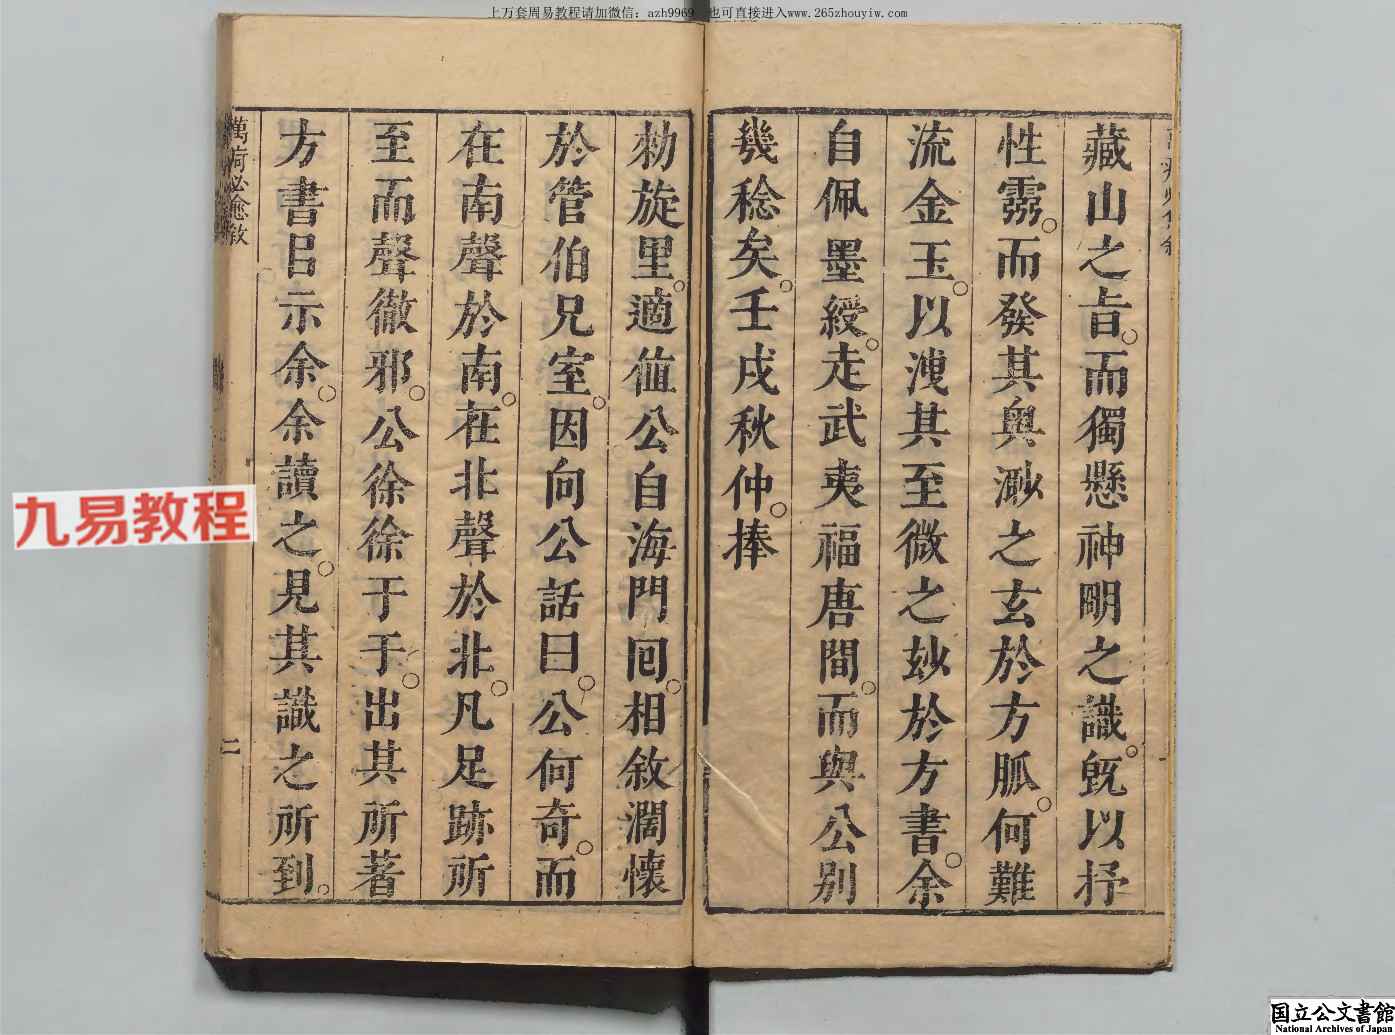 上万套周易教程请加微信：azh9969，也可直接进入www.265zhouyiw.com
藏山之㫖。而獨懸神明之識。旣以抒
性靈。而發其奥渺之玄於方脈。何難
流金玉。以洩其至微之玅於方書。余
自佩墨綬。走武夷福唐間。而與公別
幾稔矣。壬戌秋仲。捧
勑旋里。適值公自海門囘。相敘濶懷
於管伯兄室。因向公話曰。公何奇。而
在南聲於南。在北聲於北。凡足跡所
至而聲徹邪。公徐徐于于。出其所著
方書㠯示余。余讀之。見其識之所到。
萬疴必愈敘
二
九易教程
国立公文書館
National Archives of Japan